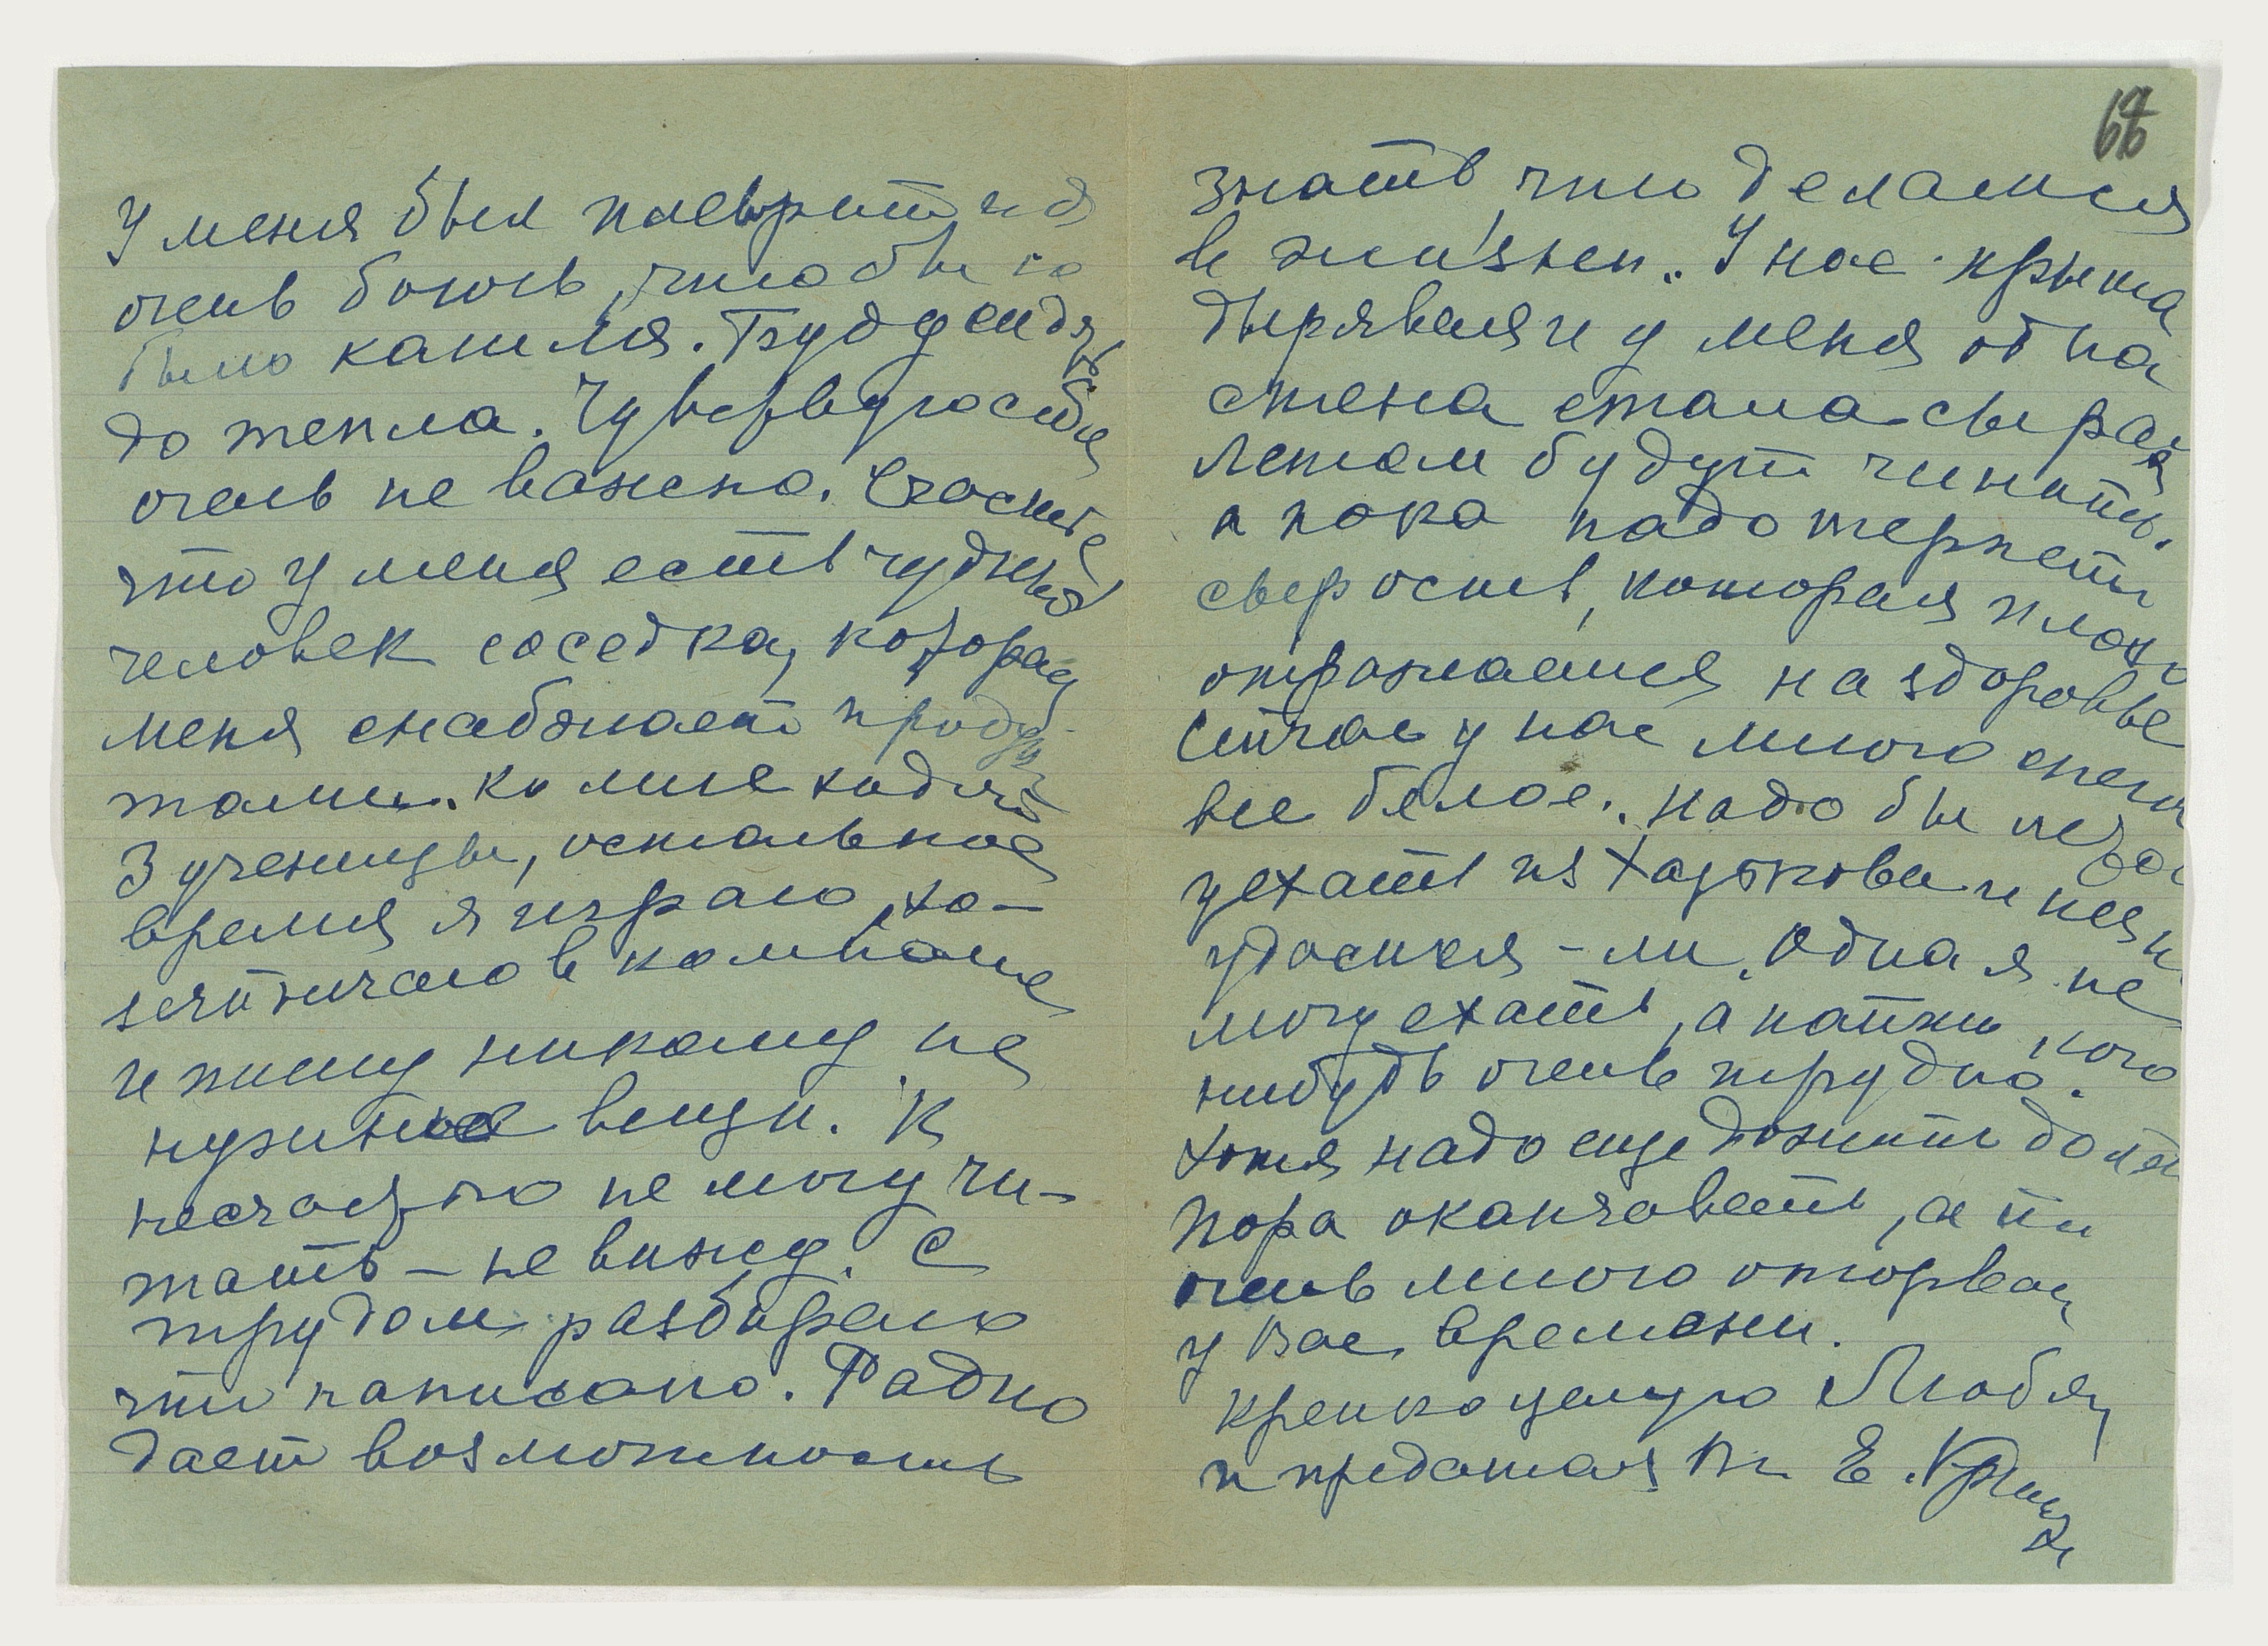 У меня был плеврит и я
очень боюсь, чтобы не
было кашля. Буду сидеть
до тепла. Чувствую себя
очень не важно. Счастье
что у меня есть чудный
человек соседка, которая
меня снабжает продук
тами. Ко мне ходят
3 ученицы, остальное
время я играю, хо-
зяйничаю в комнате
и пишу никому не
нужные вещи. К
несчастью не могу чи-
тать – не вижу. С
трудом разбираю
что написано. Радио
дает возможность
68
знать, что делается
в жизни. У нас крыша
дырявая и у меня одна
стена стала сырая
Летом будут чинить.
а пока надо терпеть
сырость, которая плохо
отражается на здоровье
Сейчас у нас много снега
все белое. Надо бы
уехать из Харькова и не
удастся-ли. Одна я не
могу ехать, а найти кого
нибудь очень трудно.
Хотя надо еще дожить до лета
Пора оканчивать, а то
очень много оторвал
у Вас времени.
Крепко целую Любящ
и преданная Вам Е.